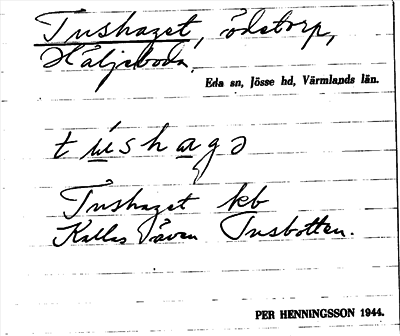 Tushaget, ödetorp,
Häljeboda.
Eda sn, Jösse hd, Värmlands län.
tu̲sha̲gə
Tushaget kb
Kallas även Tusbotten.
PER HENNINGSSON 1944.